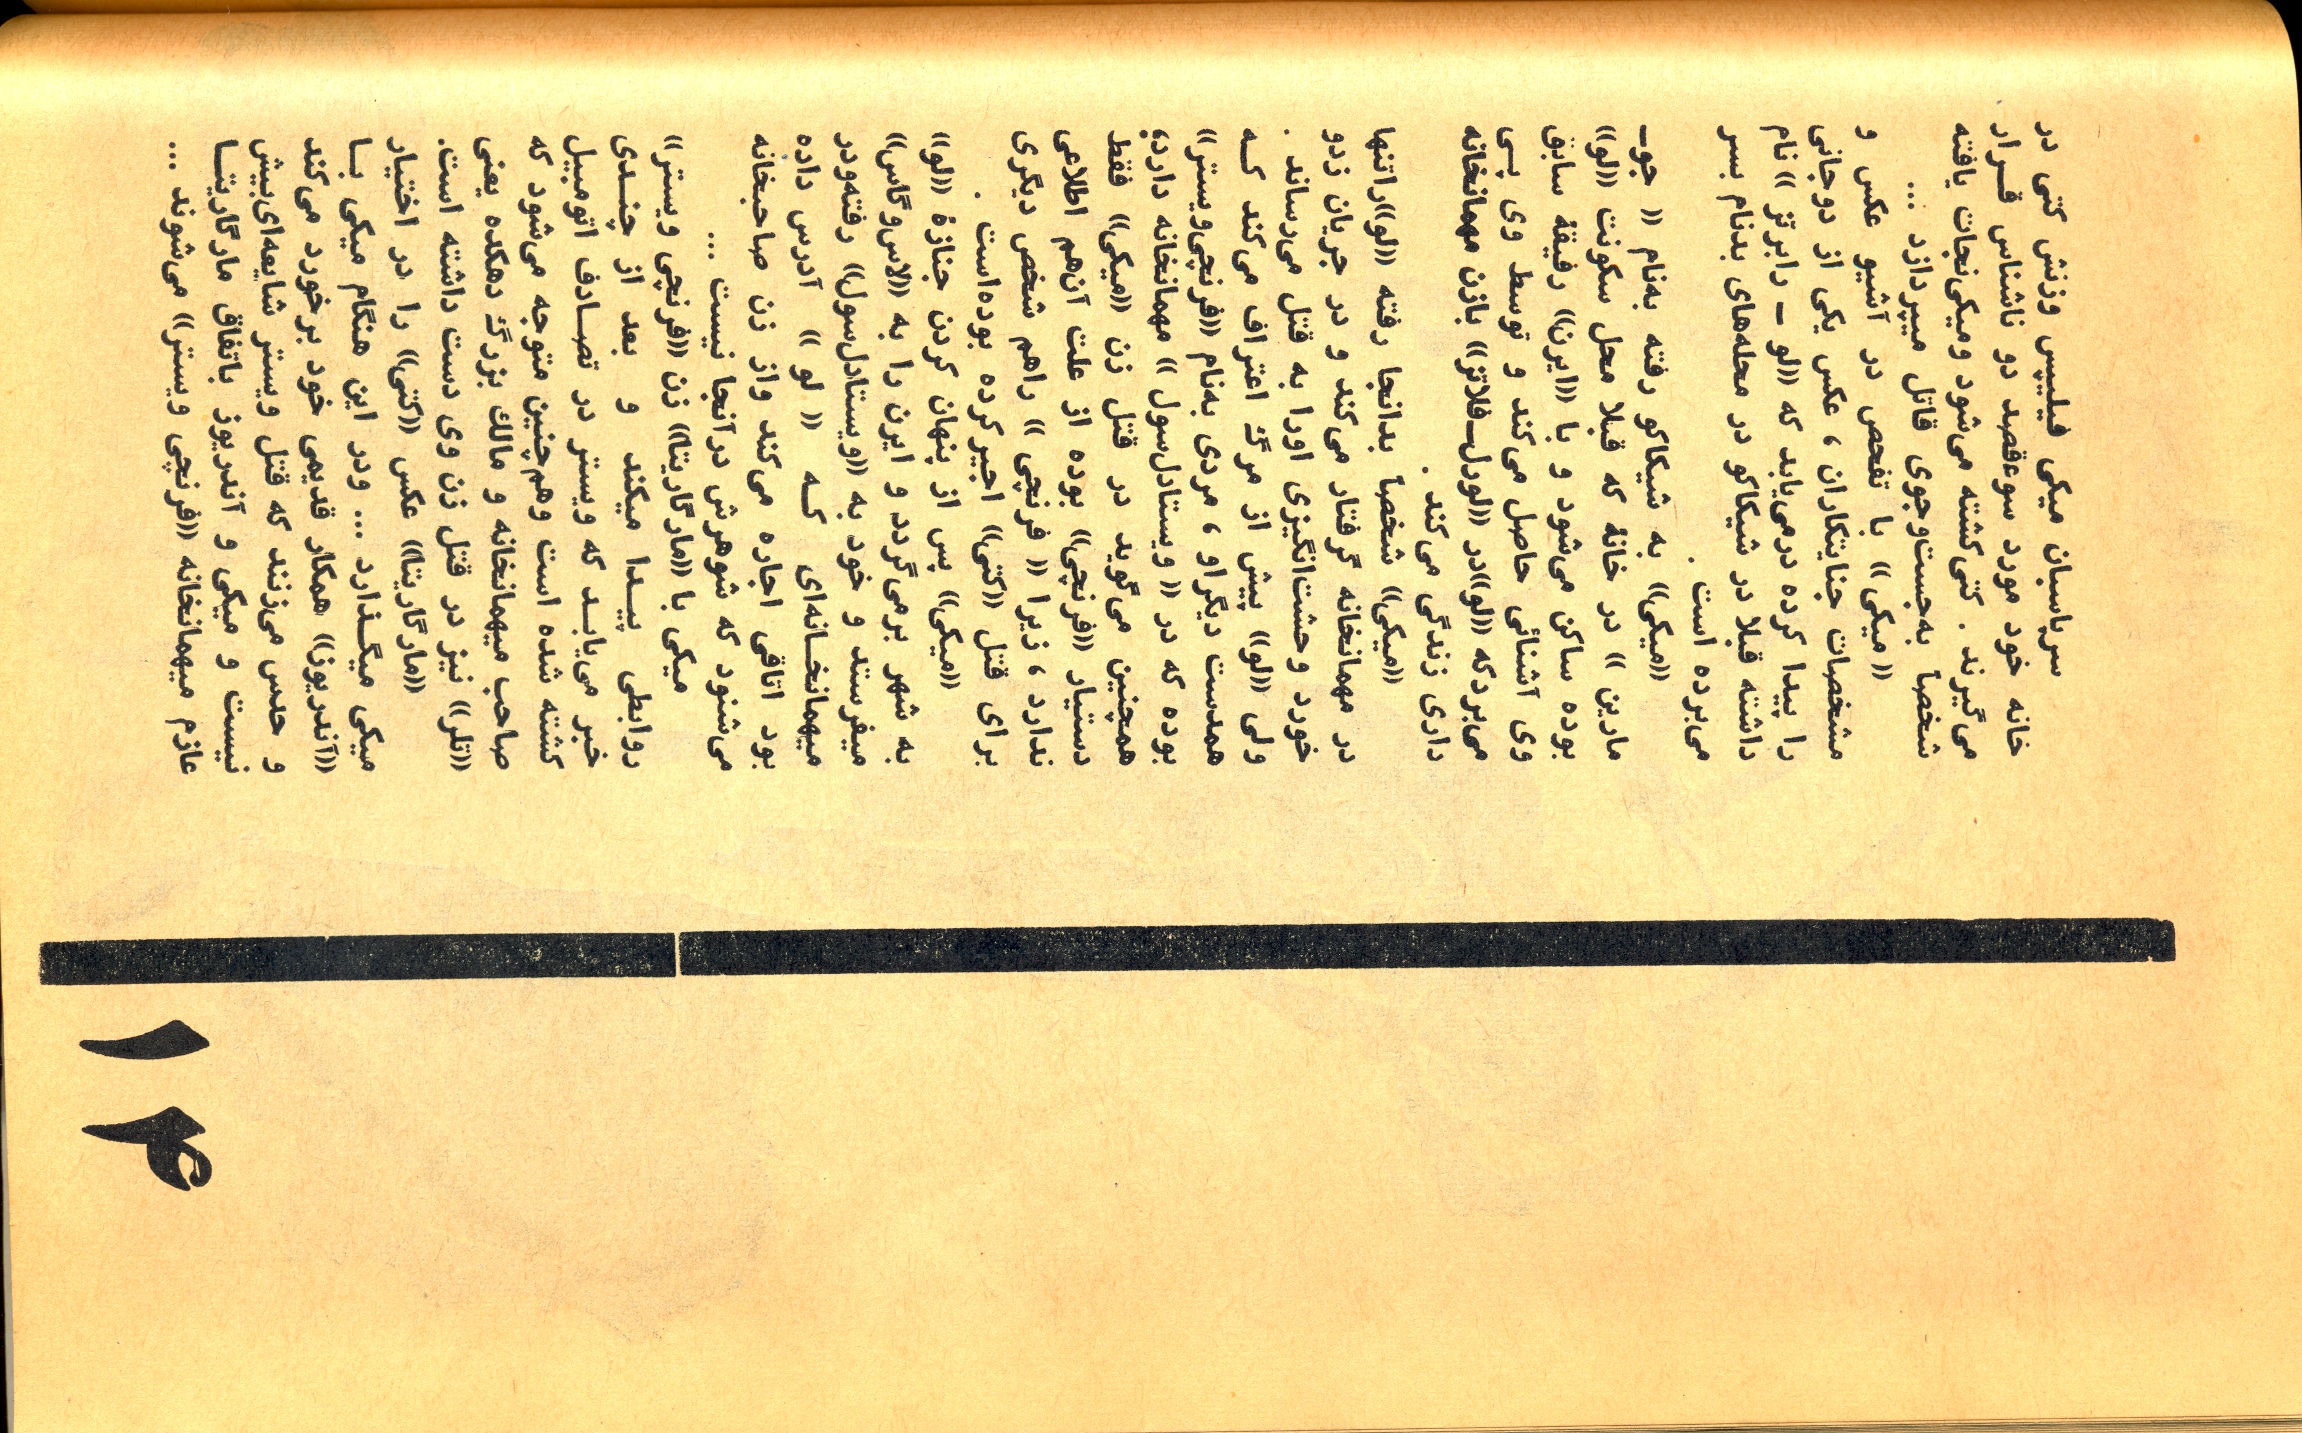 سرپاسبان میکی فیلیپس وزنش کتی در
خانه خود مورد سوءقصد دو ناشناس قــرار
می‌گیرند . کتی‌کشته می‌شود ومیکی‌نجات یافته
شخصاً به‌جست‌وجوی قاتل میپردازد ...
« میکی » با تفحص در آشیو عکس و
مشخصات جنایتکاران ، عکس یکی از دوجانی
را پیدا کرده درمی‌یابد که «لو ـ رابرتز » نام
داشته قبلا در شیکاکو در محله‌های بدنام بسر
می‌برده است .
«میکی» به شیکاکو رفته به‌نام « جوـ
مارین » در خانهٔ که قبلا محل سکونت «لو»
بوده ساکن می‌شود و با «ایرن» رفیقهٔ سابق
وی آشنائی حاصل می‌کند و توسط وی پــی
می‌بردکه «لو»در «لودل‌ـ‌فلاتز» بازن مهمانخانه
داری زندگی می‌کند .
«میکی» شخصاً بدانجا رفته «لو»راتنها
در مهمانخانه گرفتار می‌کند و در جریان زدو
خورد وحشت‌انگیزی اورا به قتل می‌رساند .
ولی «لو» پیش از مرگ اعتراف می‌کند کــه
همدست دیگراو ، مردی به‌نام «فرنچی‌ویستر»
بوده که در « ویستادل‌سول » مهمانخانه دارد،
همچنین می‌گوید در قتل زن «میکی» فقط
دستیار «فرنچی» بوده از علت آن‌هم اطلاعی
ندارد ، زیرا « فرنچی » راهم شخص دیگری
برای قتل «کتی» اجیرکرده بوده‌است .
«میکی» پس از پنهان کردن جنازهٔ «لو»
به شهر برمی‌گردد و ایرن را به «لاس‌وگاس»
میفرستد و خود به «ویستادل‌سول» رفته‌ودر
میهمانخــانه‌ای کــه « لو » آدرس داده
بود اتاقی اجاره می‌کند واز زن صاحبخانه
می‌شنود که شوهرش درآنجا نیست ...
میکی با «مارگاریتا» زن «فرنچی ویستر»
روابطی پیــدا میکند و بعد از چنــدی
خبر می‌یابــد که ویستر در تصــادف اتومبیل
کشته شده است وهم‌چنین متوجه می‌شود که
صاحب میهمانخانه و مالك بزرگ دهکده یعنی
«تلر» نیز در قتل زن وی دست داشته است.
«مارگاریتا» عکس «کتی» را در اختیار
میکی میگــذارد ... ودر این هنگام میکی بــا
«آندریوز» همکار قدیمی خود برخورد می‌کند
و حدس می‌زنند که قتل ویستر شایعه‌ای‌بیش
نیست و میکی و آندریوز باتفاق مارگاریتــا
عازم میهمانخانه «فرنچی ویستر» می‌شوند ...
۱۴